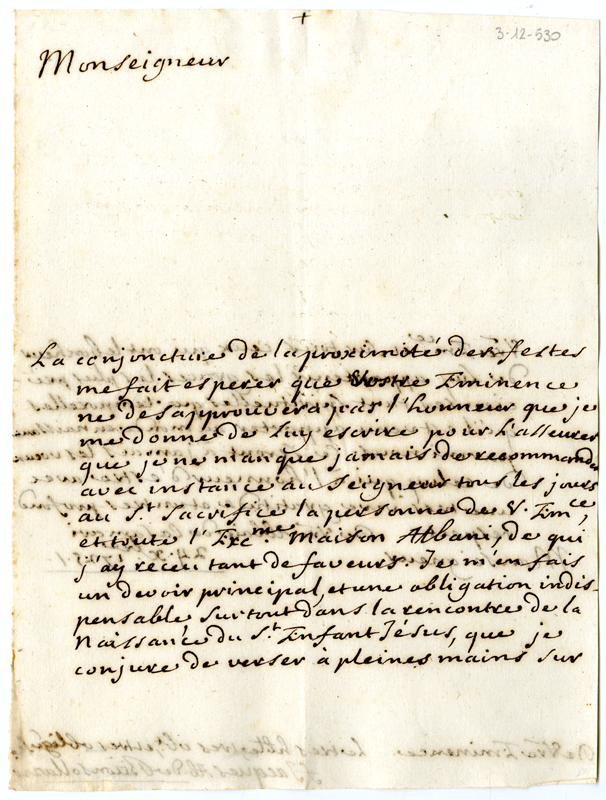 +
3-12-530
Monseigneur
La conjoncture de la proximité des festes
me fait esperer que Vostre Eminence
ne desapprouvera pas l'honneur que je
me donne de luy escrire pour l'asseurer
que je ne manque jamais de recommander
avec instance au Seigneur tous les jours
au St. Sacrifice la personne de V. Emce,
et toute l'Excme Maison Albani, de qui
j'ay receu tant de faveurs. Je m'en fais
un devoir principal, et une obligation indis-
pensable surtout dans la rencontre de la
Naissance du St. Enfant Jésus, que je
conjure de verser à pleines mains sur